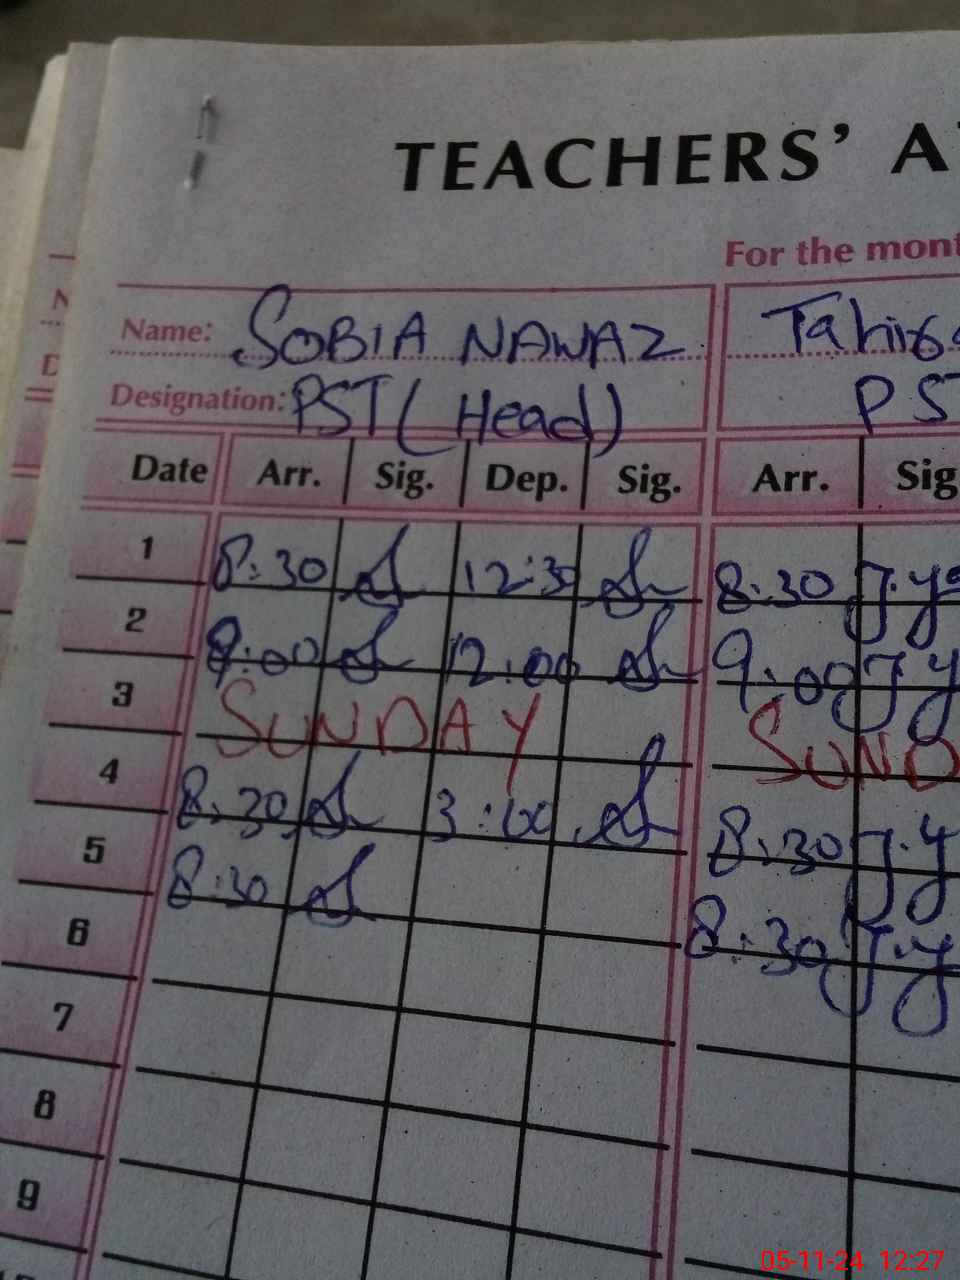 TEACHERS' A
For the mont
Name: SOBIA NAWAZ
Designation: PST (Head) PST
Date Arr. Sig. Dep. Sig. Arr. Sig
1 8:30 12:30 8:30
2 9:00 12:00 9:00
3 SUNDAY SUND
4 8:30 3:00 8:30
5 8:30 8:30
6
7
8
9
05-11-24 12:27